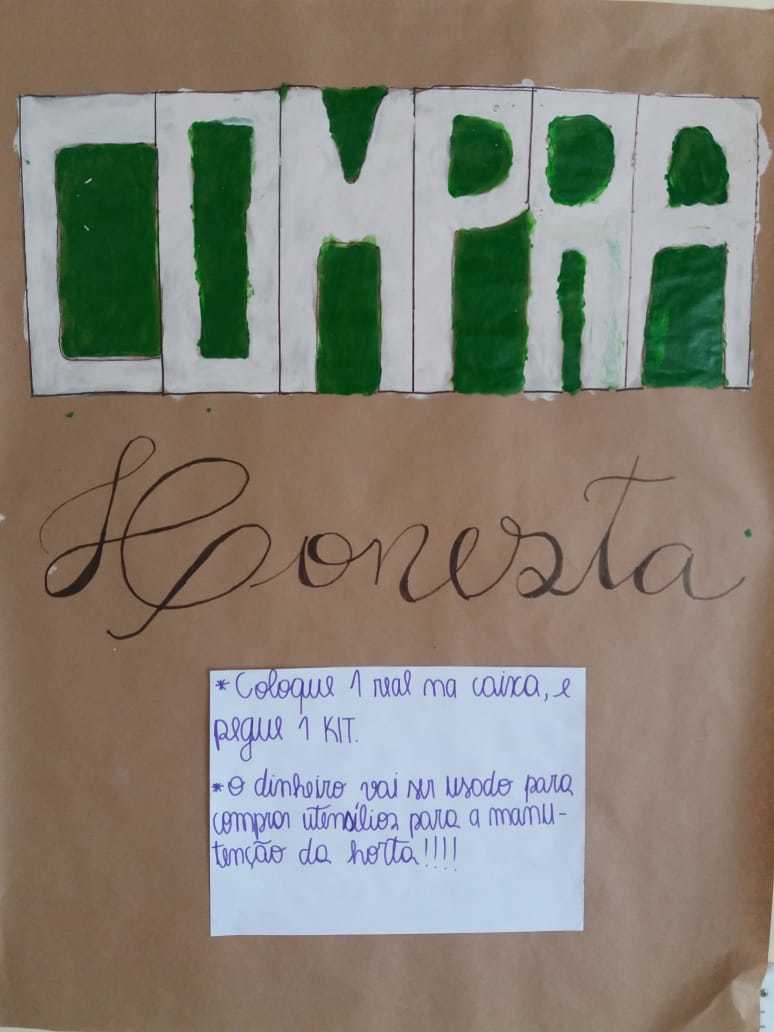 COMPRA
Honesta
* Coloque 1 real na caixa, e
pegue 1 KIT.
* O dinheiro vai ser usado para
comprar utensílios para a manu-
tenção da horta!!!!